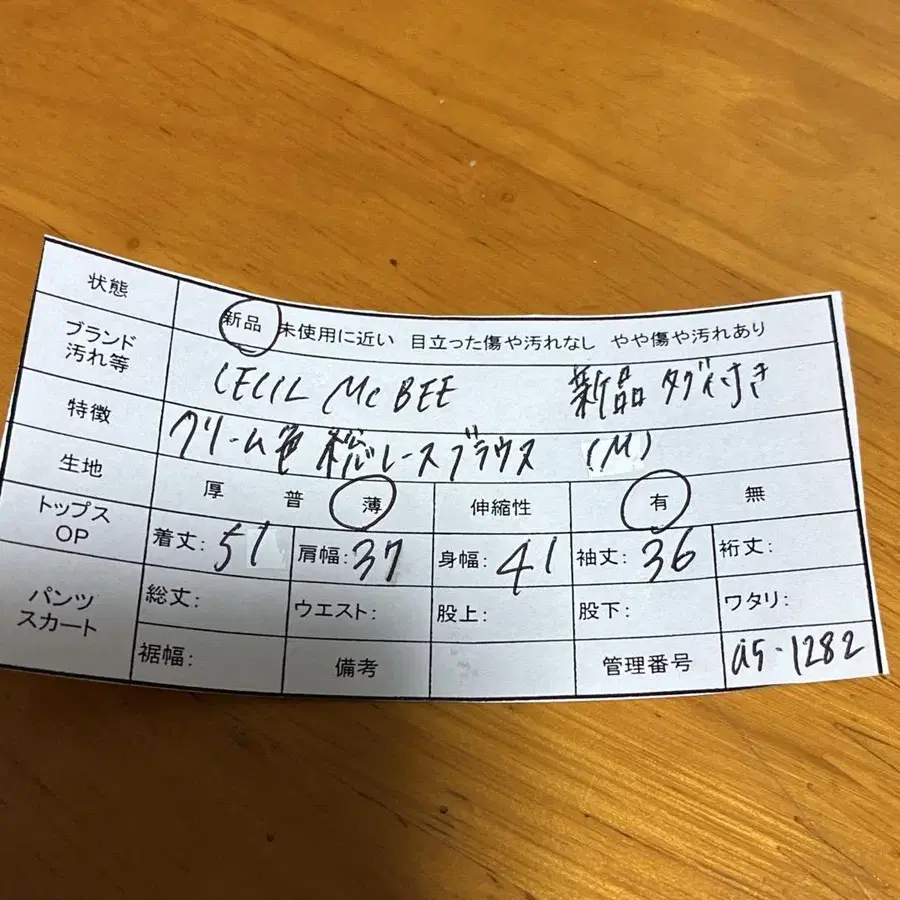 状態 新品 未使用に近い 目立った傷や汚れなし やや傷や汚れあり
ブランド 汚れ等 CECIL Mc BEE 新品タグ付き
特徴 クリーム色 総レースブラウス (M)
生地 厚 普 薄 伸縮性 有 無
トップス OP 着丈: 51 肩幅: 37 身幅: 41 袖丈: 36 裄丈:
パンツ スカート 総丈: ウエスト: 股上: 股下: ワタリ:
裾幅: 備考 管理番号 a5-1282